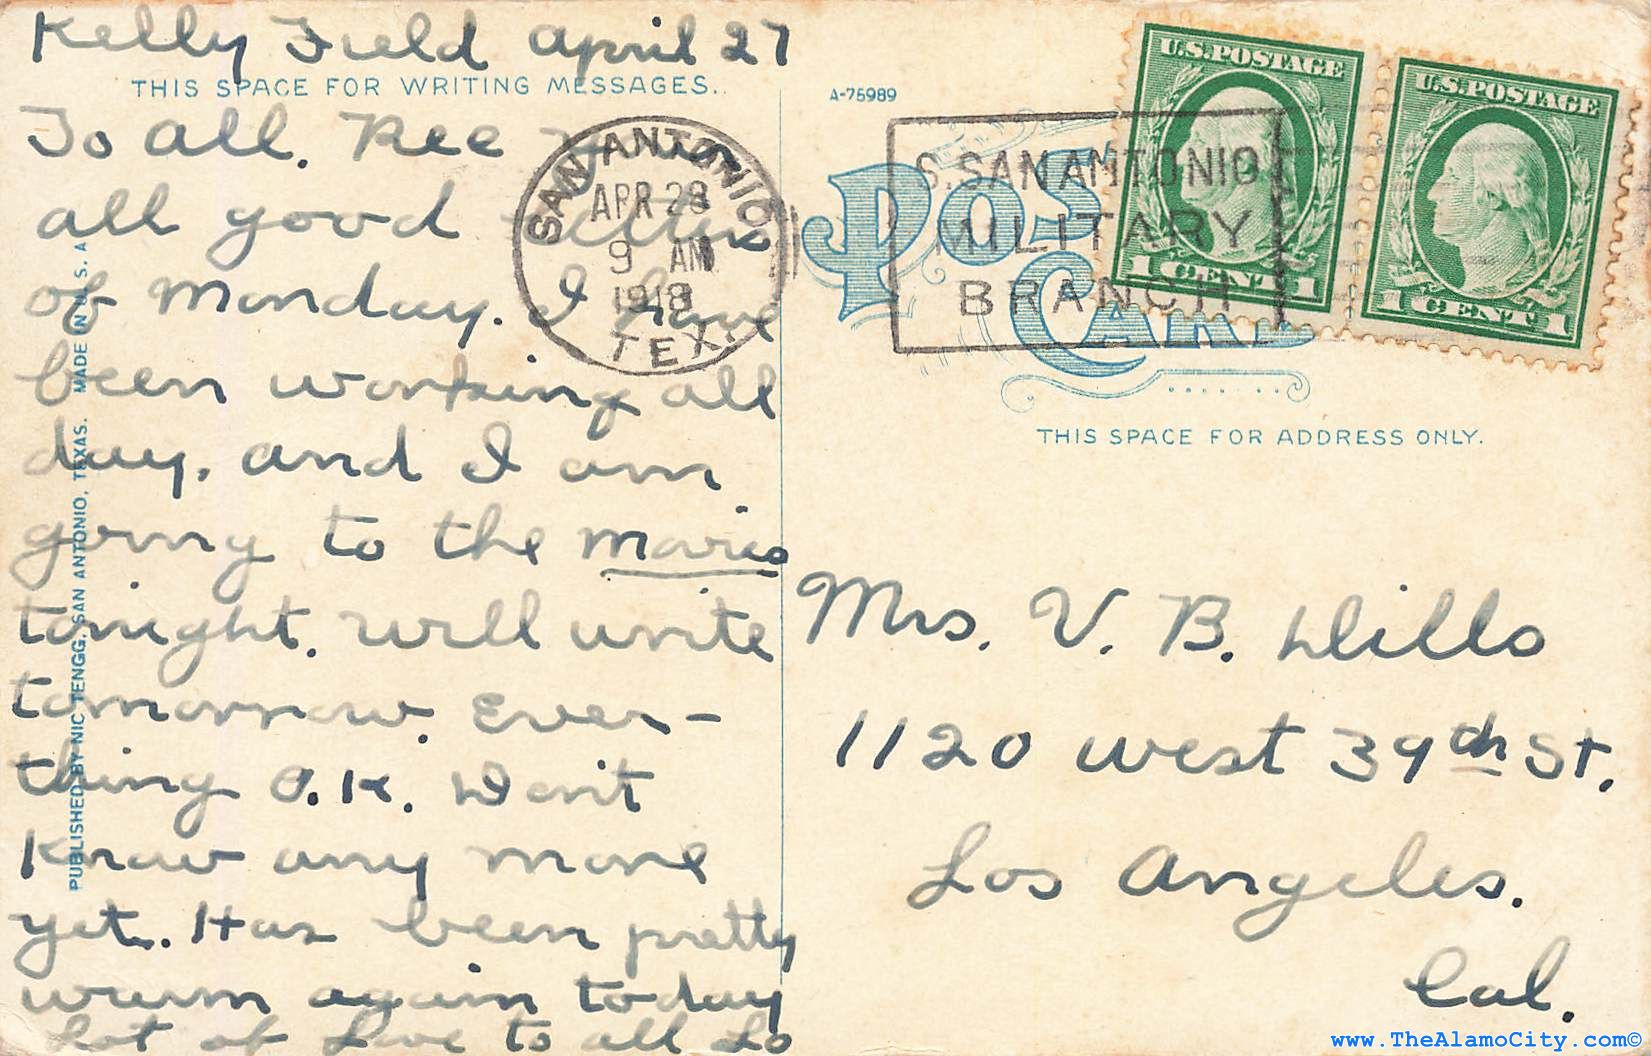 Kelly Field April 27
THIS SPACE FOR WRITING MESSAGES.
To all. Rec
all good letters
of Monday. I have
been working all
day, and I am
going to the movies
tonight. will write
tomorrow. Ever-
thing O.K. Don't
Know any more
yet. Has been pretty
warm again today
Lot of Love to all Lo
PUBLISHED BY NIC TENGG, SAN ANTONIO, TEXAS. MADE IN U.S.A
SAN ANTONIO
APR 28
9 AM
1918
TEX.
A-75989
POST
CARD
S. SAN ANTONIO
MILITARY
BRANCH
U.S. POSTAGE
1 CENT 1
U.S. POSTAGE
1 CENT 1
THIS SPACE FOR ADDRESS ONLY.
Mrs. V. B. Dills
1120 West 39th St.
Los Angeles.
Cal.
www.TheAlamoCity.com©